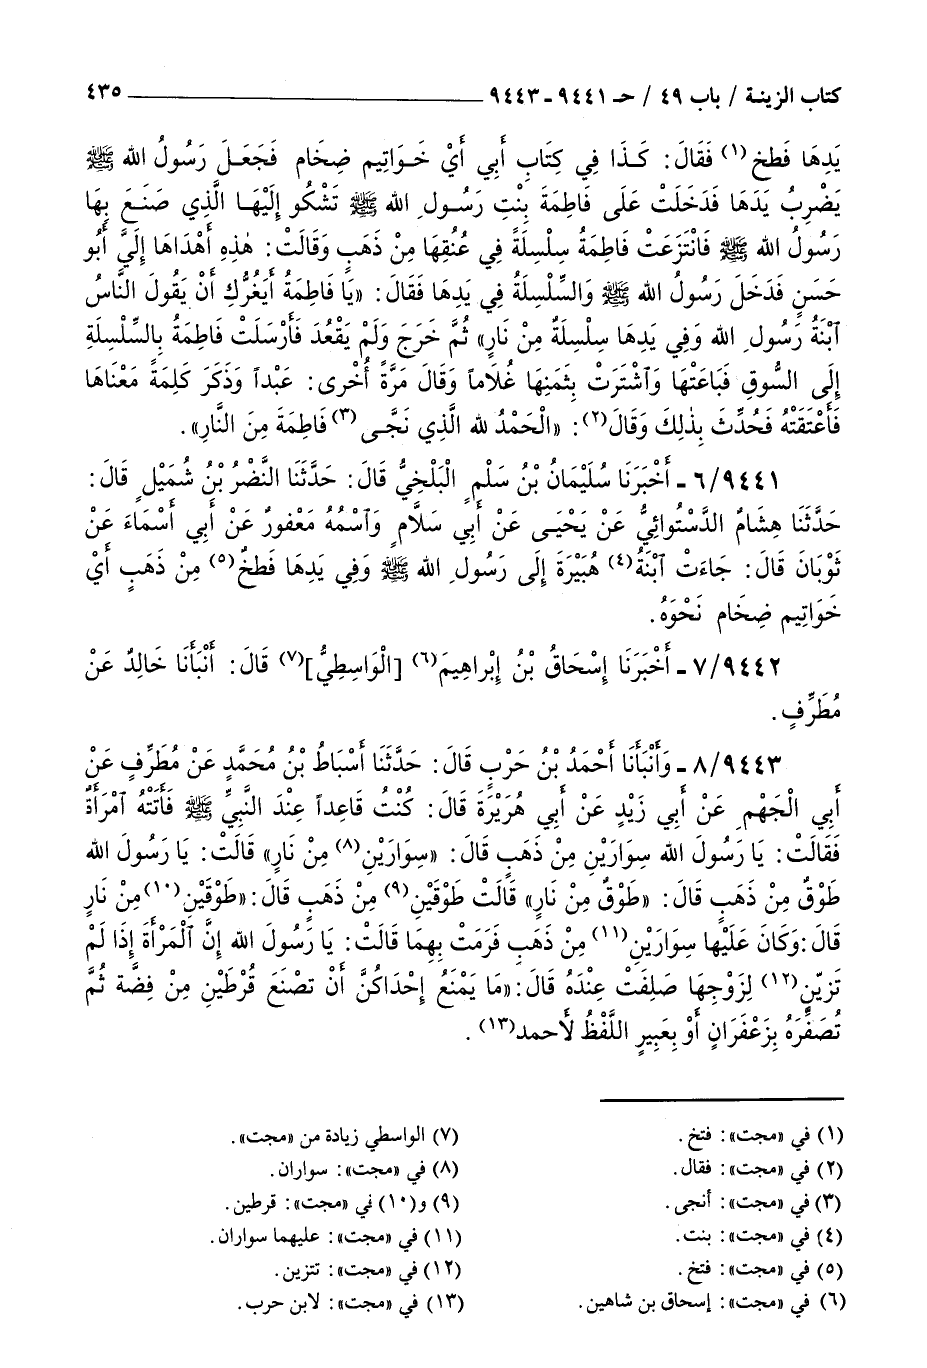 كتاب الزينة / باب ٤٩ / حـ ٩٤٤١ - ٩٤٤٣ ٤٣٥
يَدِهَا فَطخ(١) فَقَالَ: كَذَا فِي كِتَابِ أَبِي أَيْ خَوَاتِيمٍ ضِخَامٍ فَجَعَلَ رَسُولُ الله ﷺ
يَضْرِبُ يَدَهَا فَدَخَلَتْ عَلَى فَاطِمَةَ بِنْتِ رَسُولِ الله ﷺ تَشْكُو إِلَيْهَا الَّذِي صَنَعَ بِهَا
رَسُولُ الله ﷺ فَانْتَزَعَتْ فَاطِمَةُ سِلْسِلَةً فِي عُنُقِهَا مِنْ ذَهَبٍ وَقَالَتْ: هٰذِهِ أَهْدَاهَا إِلَيَّ أَبُو
حَسَنٍ فَدَخَلَ رَسُولُ الله ﷺ وَالسِّلْسِلَةُ فِي يَدِهَا فَقَالَ: «يَا فَاطِمَةُ أَيَغُرُّكِ أَنْ يَقُولَ النَّاسُ
ٱبْنَةُ رَسُولِ الله وَفِي يَدِهَا سِلْسِلَةٌ مِنْ نَارٍ» ثُمَّ خَرَجَ وَلَمْ يَقْعُدْ فَأَرْسَلَتْ فَاطِمَةُ بِالسِّلْسِلَةِ
إِلَى السُّوقِ فَبَاعَتْهَا وَٱشْتَرَتْ بِثَمَنِهَا غُلَاماً وَقَالَ مَرَّةً أُخْرى: عَبْداً وَذَكَرَ كَلِمَةً مَعْنَاهَا
فَأَعْتَقَتْهُ فَحُدِّثَ بِذٰلِكَ وَقَالَ(٢): «الْحَمْدُ لله الَّذِي نَجَّى(٣) فَاطِمَةَ مِنَ النَّارِ».
٦/٩٤٤١ - أَخْبَرَنَا سُلَيْمَانُ بْنُ سَلْمٍ الْبَلْخِيُّ قَالَ: حَدَّثَنَا النَّضْرُ بْنُ شُمَيْلٍ قَالَ:
حَدَّثَنَا هِشَامٌ الدَّسْتَوائِيُّ عَنْ يَحْيَى عَنْ أَبِي سَلَّامٍ وَٱسْمُهُ مَعْفورٌ عَنْ أَبِي أَسْمَاءَ عَنْ
ثَوْبَانَ قَالَ: جَاءَتْ ٱبْنَةُ(٤) هُبَيْرَةَ إِلَى رَسُولِ الله ﷺ وَفِي يَدِهَا فَطخٌ(٥) مِنْ ذَهَبٍ أَيْ
خَوَاتِيمٍ ضِخَامٍ نَحْوَهُ.
٧/٩٤٤٢ - أَخْبَرَنَا إِسْحَاقُ بْنُ إِبْراهِيمَ(٦) [الْوَاسِطِيُّ](٧) قَالَ: أَنْبَأَنَا خَالِدٌ عَنْ
مُطَرِّفٍ.
٨/٩٤٤٣ - وَأَنْبَأَنَا أَحْمَدُ بْنُ حَرْبٍ قَالَ: حَدَّثَنَا أَسْبَاطُ بْنُ مُحَمَّدٍ عَنْ مُطَرِّفٍ عَنْ
أَبِي الْجَهْمِ عَنْ أَبِي زَيْدٍ عَنْ أَبِي هُرَيْرَةَ قَالَ: كُنْتُ قَاعِداً عِنْدَ النَّبِيِّ ﷺ فَأَتَتْهُ ٱمْرَأَةٌ
فَقَالَتْ: يَا رَسُولَ الله سِوَارَيْنِ مِنْ ذَهَبٍ قَالَ: «سِوَارَيْنِ(٨) مِنْ نَارٍ» قَالَتْ: يَا رَسُولَ الله
طَوْقٌ مِنْ ذَهَبٍ قَالَ: «طَوْقٌ مِنْ نَارٍ» قَالَتْ طَوْقَيْنِ(٩) مِنْ ذَهَبٍ قَالَ: «طَوْقَيْنِ(١٠) مِنْ نَارٍ
قَالَ: وَكَانَ عَلَيْها سِوَارَيْنِ(١١) مِنْ ذَهَبٍ فَرَمَتْ بِهِمَا قَالَتْ: يَا رَسُولَ الله إِنَّ ٱلْمَرْأَةَ إِذَا لَمْ
تَزَيَّنْ(١٢) لِزَوْجِهَا صَلِفَتْ عِنْدَهُ قَالَ: «مَا يَمْنَعُ إِحْدَاكُنَّ أَنْ تَصْنَعَ قُرْطَيْنِ مِنْ فِضَّة ثُمَّ
تُصَفِّرَهُ بِزَعْفَرَانٍ أَوْ بِعَبِيرٍ اللَّفْظُ لأحمد(١٣).
(١) في «مجت»: فتخ.
(٢) في «مجت»: فقال.
(٣) في «مجت»: أنجى.
(٤) في «مجت»: بنت.
(٥) في «مجت»: فتخ.
(٦) في «مجت»: إسحاق بن شاهين.
(٧) الواسطي زيادة من «مجت».
(٨) في «مجت»: سواران.
(٩) و(١٠) في «مجت»: قرطين.
(١١) في «مجت»: عليهما سواران.
(١٢) في «مجت»: تتزين.
(١٣) في «مجت»: لابن حرب.